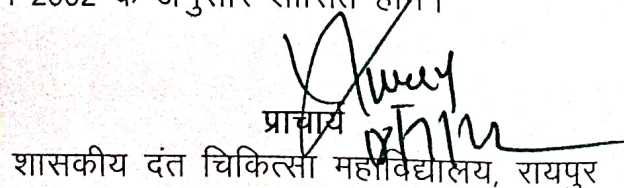 2002 के अनुसार शासित
प्राचार्य
शासकीय दंत चिकित्सा महाविद्यालय, रायपुर